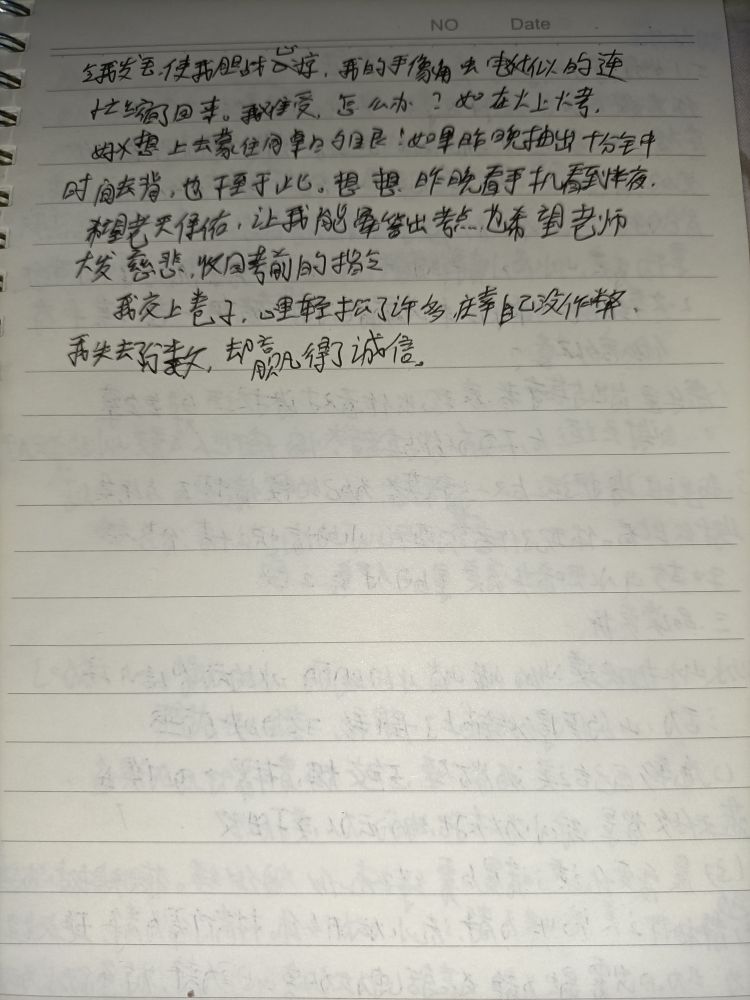 NO Date
我发言,使我胆战心惊,我的手像触电似的连
忙缩了回来。我难受,怎么办?如在火上火考,
好想上去蒙住同桌的嘴!如果昨晚抽出十分钟
时间去背,也不至于此。想想昨晚看手机看到半夜,
希望老天保佑,让我能答出考点,也希望老师
大发慈悲,收回考前的指令
我交上卷子,心里轻松了许多,庆幸自己没作弊,
我失去了分数,却赢得了诚信。